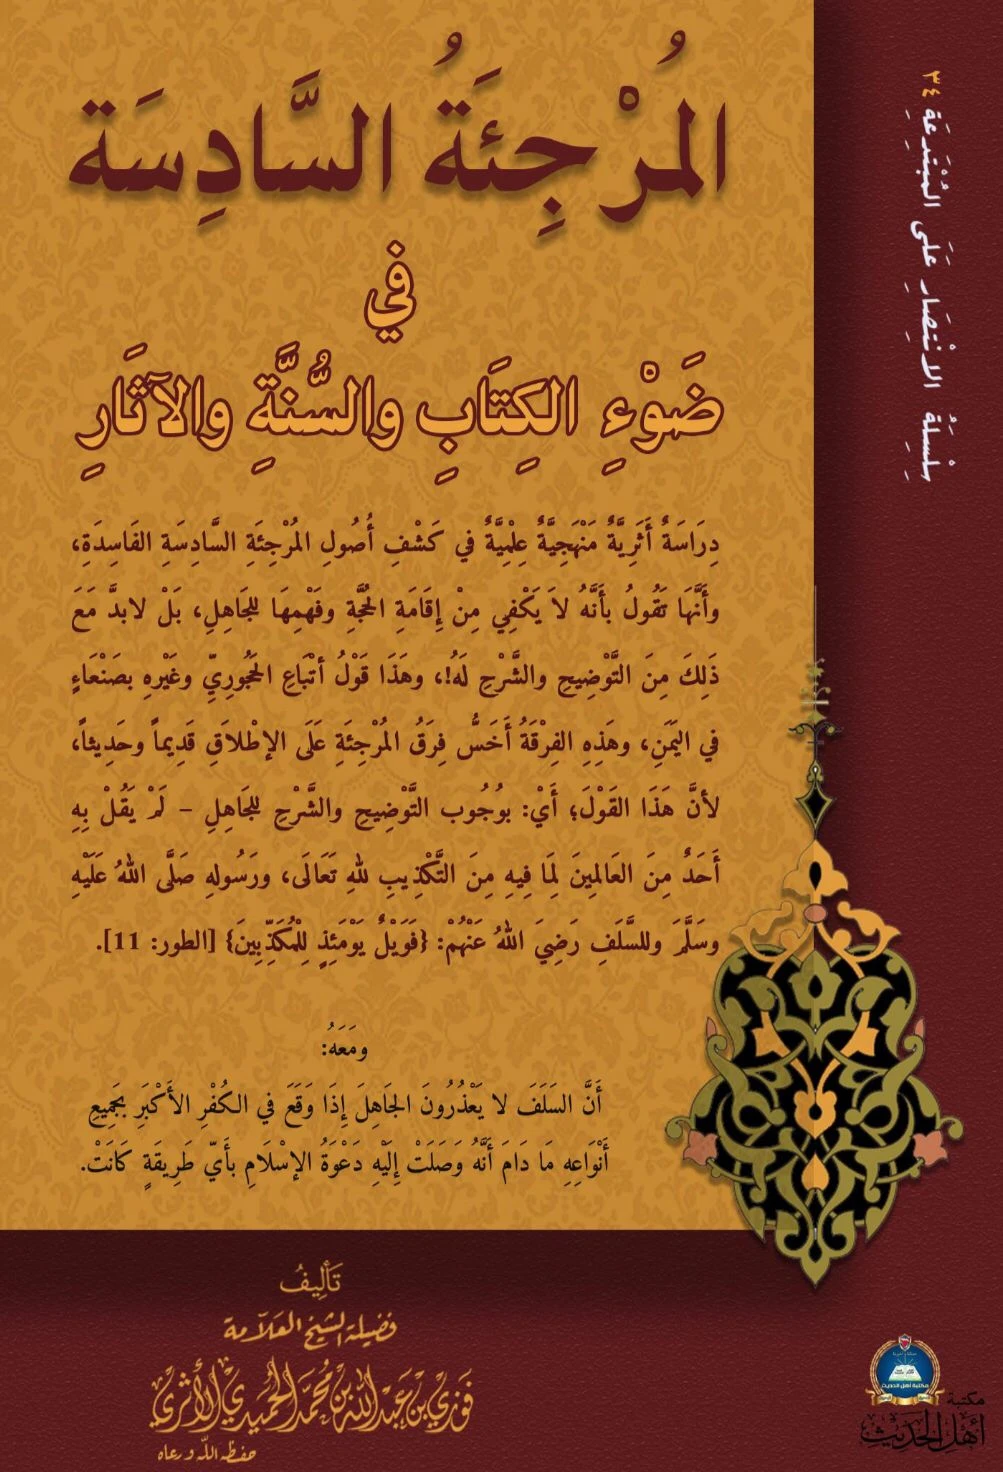 المُرْجِئَةُ السَّادِسَة
في
ضَوْءِ الكِتَابِ والسُّنَّةِ والآثَارِ
دِرَاسَةٌ أَثَرِيَّةٌ مَنْهَجِيَّةٌ عِلْمِيَّةٌ في كَشْفِ أُصُولِ المُرْجِئَةِ السَّادِسَةِ الفَاسِدَةِ،
وأَنَّهَا تَقُولُ بأَنَّهُ لاَ يَكْفِي مِنْ إِقَامَةِ الحُجَّةِ وفَهْمِهَا للجَاهِلِ، بَلْ لابدَّ مَعَ
ذَلِكَ مِنَ التَّوْضِيحِ والشَّرْحِ لَهُ!، وهَذَا قَوْلُ أتْبَاعِ الحَجُورِيِّ وغَيْرهِ بصَنْعَاءٍ
في اليَمَنِ، وهَذِهِ الفِرْقَةُ أَخَسُّ فِرَقُ المُرْجِئَةِ عَلَى الإطْلاَقِ قَدِيماً وحَدِيثاً،
لأنَّ هَذَا القَوْلَ؛ أَيْ: بوُجُوبِ التَّوْضِيحِ والشَّرْحِ للجَاهِلِ – لَمْ يَقُلْ بِهِ
أَحَدٌ مِنَ العَالمِينَ لِمَا فِيهِ مِنَ التَّكْذِيبِ للهِ تَعَالَى، ورَسُولهِ صَلَّى اللهُ عَلَيْهِ
وسَلَّمَ وللسَّلَفِ رَضِيَ اللهُ عَنْهُمْ: {فَوَيْلٌ يَوْمَئِذٍ لِلْمُكَذِّبِينَ} [الطور: 11].
ومَعَهُ:
أَنَّ السَلَفَ لا يَعْذُرُونَ الجَاهِلَ إِذَا وَقَعَ في الكُفْرِ الأَكْبَرِ بجَمِيعِ
أَنْوَاعِهِ مَا دَامَ أَنَّهُ وَصَلَتْ إِلَيْهِ دَعْوَةُ الإسْلاَمِ بأَيِّ طَرِيقَةٍ كَانَتْ.
تَأْلِيفُ
فضيلة الشيخ العَلاّمة
فَوْزِي بْن عَبْدِ اللَّهِ بْنِ مُحَمَّد الحُمَيدِي الأَثَرِي
حفظه اللّه ورعاه
سِلْسِلَةُ الانْتِصَارِ عَلَى المُبْتَدِعَةِ ٣٤
مكتبة
أَهْلِ الحَدِيثِ
مكتبة أهل الحديث